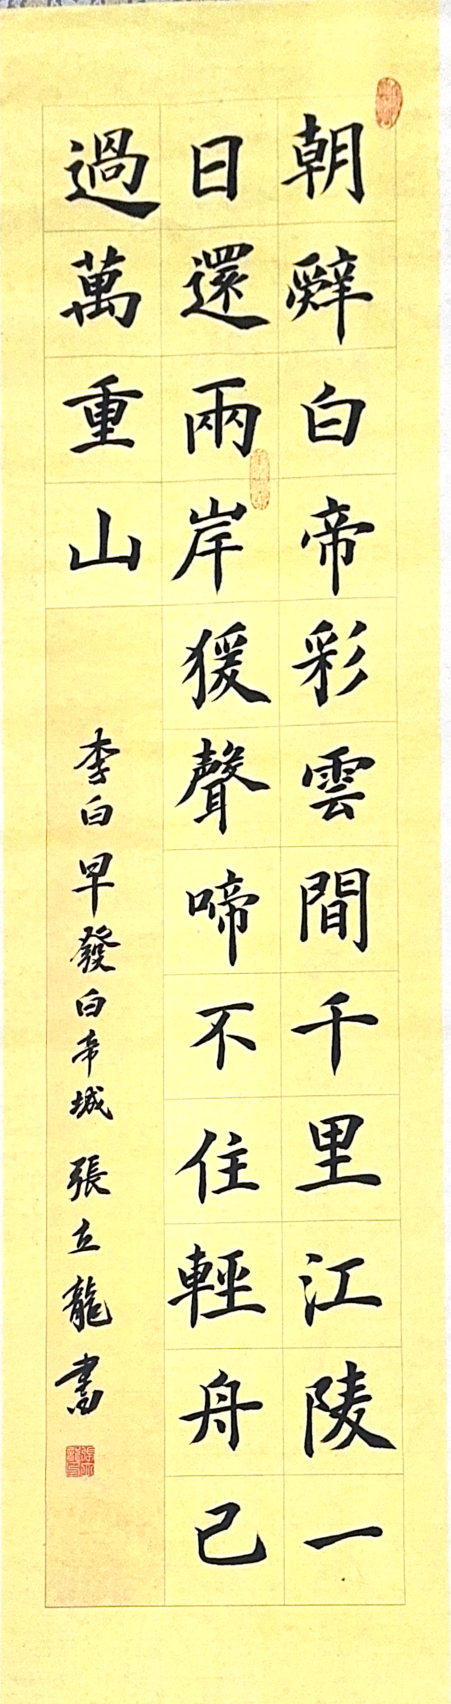 朝辭白帝彩雲間千里江陵一
日還兩岸猨聲啼不住輕舟已
過萬重山
李白早發白帝城 張立龍書